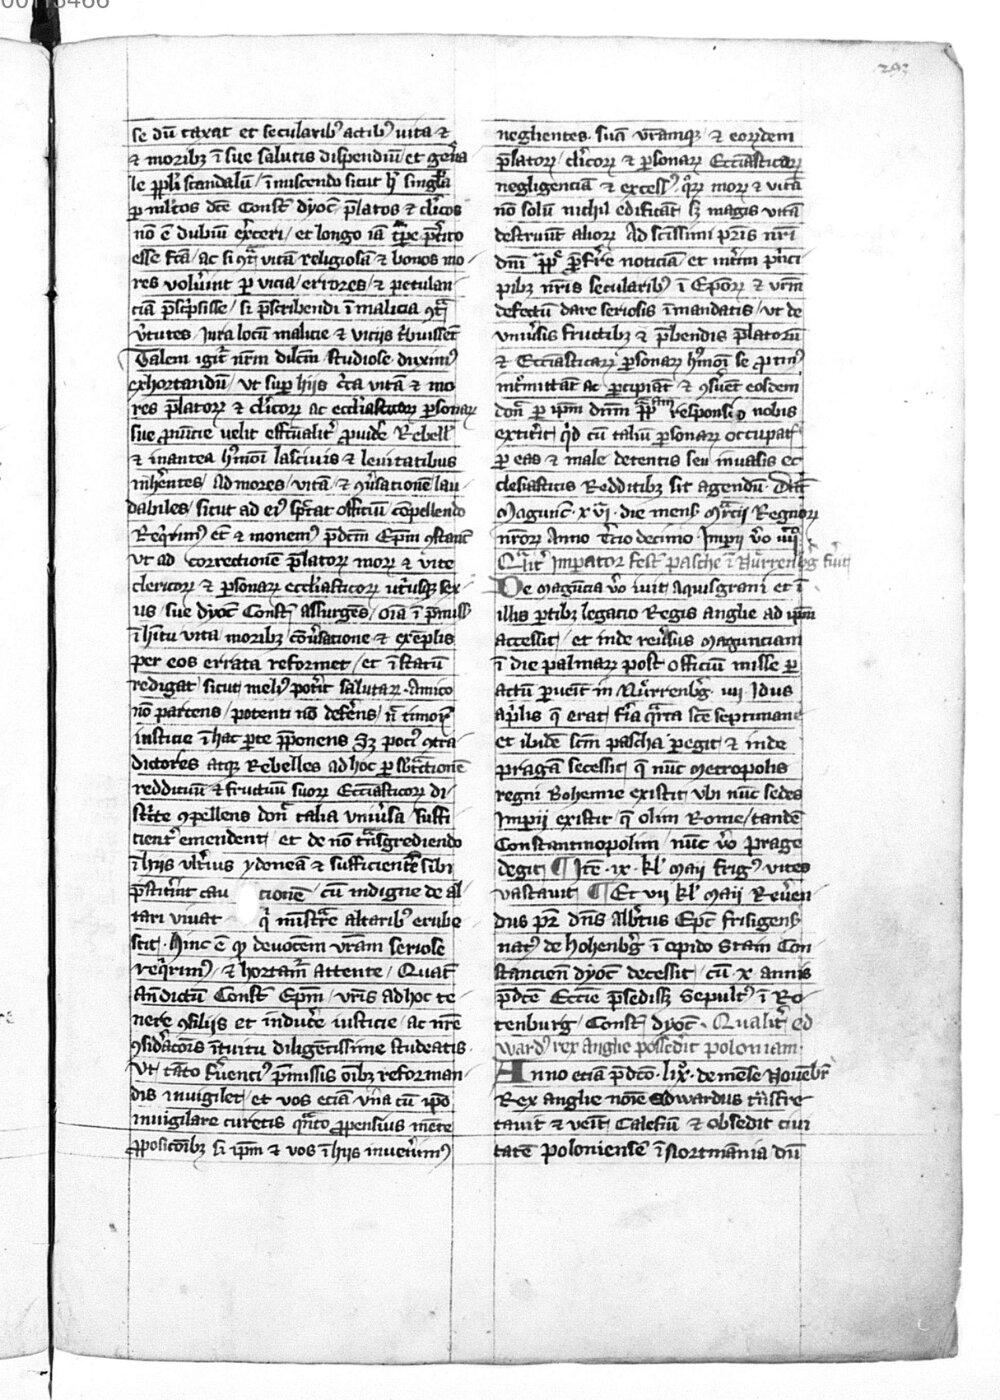 se dū taxat et secularibꝰ actibꝰ uita ⁊
⁊ moribꝫ ī sue salutis dispendiū et gēna
le ppl̄i scandalū / īmiscendo sicut hꝰ singl̄a
ꝑ milītos dc̄e Consᷤt dyoc̄ p̄latos ⁊ cl̄icos
nō ē dubiū ex̄ceri / et longo iā tp̄e p̄t̄ito
esse fc̄a / ac si ꝯt̄ vitā religiosā ⁊ bonos mo-
res volūint ꝑ vicia / errores / ⁊ petulan-
ciā p̄sc̄psisse / si p̄scribendi ī malicia ꝯt̄
v̄tutes / iura locū malicie ⁊ vicijs t̄buissēt
Talem igit̄ nr̄m dilc̄m studiose duximꝰ
exhortandū / vt suꝑ hiis c̄ca vitā ⁊ mo-
res p̄latoꝝ ⁊ cl̄icoꝝ ac eccl̄iasticoꝝ ꝑsonaꝝ
sue ꝓuincie velit effc̄ualit̄ ꝓuide Rebell̄
⁊ inantea hꝰmōi lasciuiis ⁊ leuitatibus
inh̄entes / ad mores / vitā / ⁊ ꝯv̄sationē lau-
dabiles / sicut ad eiꝰ sp̄tat officiū cōpellendo
Req̄rimꝰ et̄ ⁊ monemꝰ p̄dc̄m Ep̄m ꝯstanc̄
vt ad correctionē p̄latoꝝ moꝝ ⁊ vite
clericoꝝ ⁊ ꝑsonaꝝ eccl̄iasticoꝝ utrīusqꝫ sex-
us / sue dyoc̄ Consᷤt assurgēs / oīa ī p̄miss̄
ī hītu vita / moribꝫ cōv̄satione ⁊ exēplis
per eos errata reformet / et ī statū
redigat / sicut meliꝰ pot̄it salutaꝝ · Amico
nō parcens / potenti nō defēns / n̄ timore
iusticie ī hac ꝑte p̄ponens Sꝫ pociꝰ ꝯtra-
dictores atqꝫ Rebelles ad hoc ꝑ sb̄t̄ctionē
reddituū ⁊ fructuū suoꝝ Ecc̄iasticoꝝ di-
stc̄te ꝯpellens don̄ talia vniūsa suffi
cient̄ emendent / et de nō tn̄sgrediendo
ī hiis vlt̄ius ydoneā ⁊ sufficientē sibi
p̄stit̄int cau tionē / cū indigne de al-
tari viuat q̄ mist̄re altaribꝰ erube-
scit · Hinc ē qꝫ deuocōem vr̄am seriose
req̄rimꝰ / ⁊ hortam̄ attente / Quat̄
An̄dictū Consᷤt Ep̄m / vr̄is ad hoc te-
nere ꝯsiliis et induc̄e iusticie / ac nr̄e
ꝯsid̄acōis ītuitu diligētissime studeatis ·
Vt / tāto fūenciꝰ p̄missis oībꝫ reforman-
dis inuigilet / et vos eciā vn̄a cū ip̄o
inuigilare curetis qn̄to ꝓpensius mēte
ꝓposicōibꝫ si ip̄m ⁊ vos ī hiis inuen̄imꝰ
neglientes · suā vr̄amqꝫ ⁊ eoꝝdem
p̄latoꝝ / cl̄icoꝝ ⁊ ꝑsonaꝝ Ecc̄iasticaꝝ
negligenciā ⁊ excessꝰ / qꝝ moꝝ ⁊ vitā
nō solū nichil edificāt / sꝫ magis vitā
destruūt alioꝝ Ad sc̄issimi pr̄is nr̄i
dn̄i pp̄ p̄fr̄e noticiā et int̄im p̄nci
pibꝫ nr̄is secularibꝰ ī Ep̄oꝝ ⁊ vr̄m
defectū dare seriosis ī mandatis / vt de
vniūsis fructibꝫ ⁊ p̄bendis p̄latorū
⁊ Ecc̄iasticaꝝ ꝑsonaꝝ hꝰmōi se ꝓtinꝰ
int̄mittāt ac ꝑcipiāt ⁊ ꝯseruēt eosdem
don̄ ꝑ ip̄m dn̄m pp̄ responsiō nobis
extit̄it / q̄d cū taliū ꝑsonaꝝ occupat̄
ꝑ eas ⁊ male detentis seu inuasis ec
clesiasticis Redditibꝫ sit agendū · Dat̄
Magunc̄ · xvi · die mens̄ M̄rcii Regnoꝝ
nr̄oꝝ Anno t̄cio decimo · Imꝑii v̄o iiij
Q̄lit̄ Imꝑator fest̄ pasche ī Nūrenb̄g fuit
De magūcia v̄o iuit Aquisgrani et ī
illis ꝑtibꝫ legacio Regis anglie ad ip̄m
accessit / et inde rev̄sus Magunciam
ī die palmaꝝ post officiū misse ꝑ
actū ꝑuēit in Nūrrenb̄g · vii · Idus
Ap̄lis q̄ erat / fīa q̄rta sc̄e septimane
et ibidē sc̄m pascha ꝑegit / ⁊ inde
pragā secessit / q̄ nūc metropolis
regni Bohemie existit / vbi nūc sedes
Imꝑii existit / q̄ olim Rome / tandē
Constantinopolim / nūc v̄o prage
degit ¶ Itē · ix · kl̄ maii frigꝰ vites
vastauit ¶ Et vii kl̄ maii Rev̄en-
dus pr̄ dn̄s Alb̄tus Ep̄c frisigens̄
natꝰ de Hohenb̄g ī opido Stain Con
stancien̄ dyoc̄ decessit / cū · x · annis
p̄dc̄e Ecc̄ie p̄sedisꝫ sepultꝰ ī Ro-
tenburg / Consᷤt dyoc̄ · Qualit̄ ed
wardꝰ rex anglie possedit poloniam ·
Anno eciā p̄dc̄o · lix · de mēse Nouēbr̄
Rex anglie noīe Edwardus t̄nsfre
tauit ⁊ veīt Calesiū ⁊ obsedit ciui
tatē poloniensē ī Nortmānia / dū